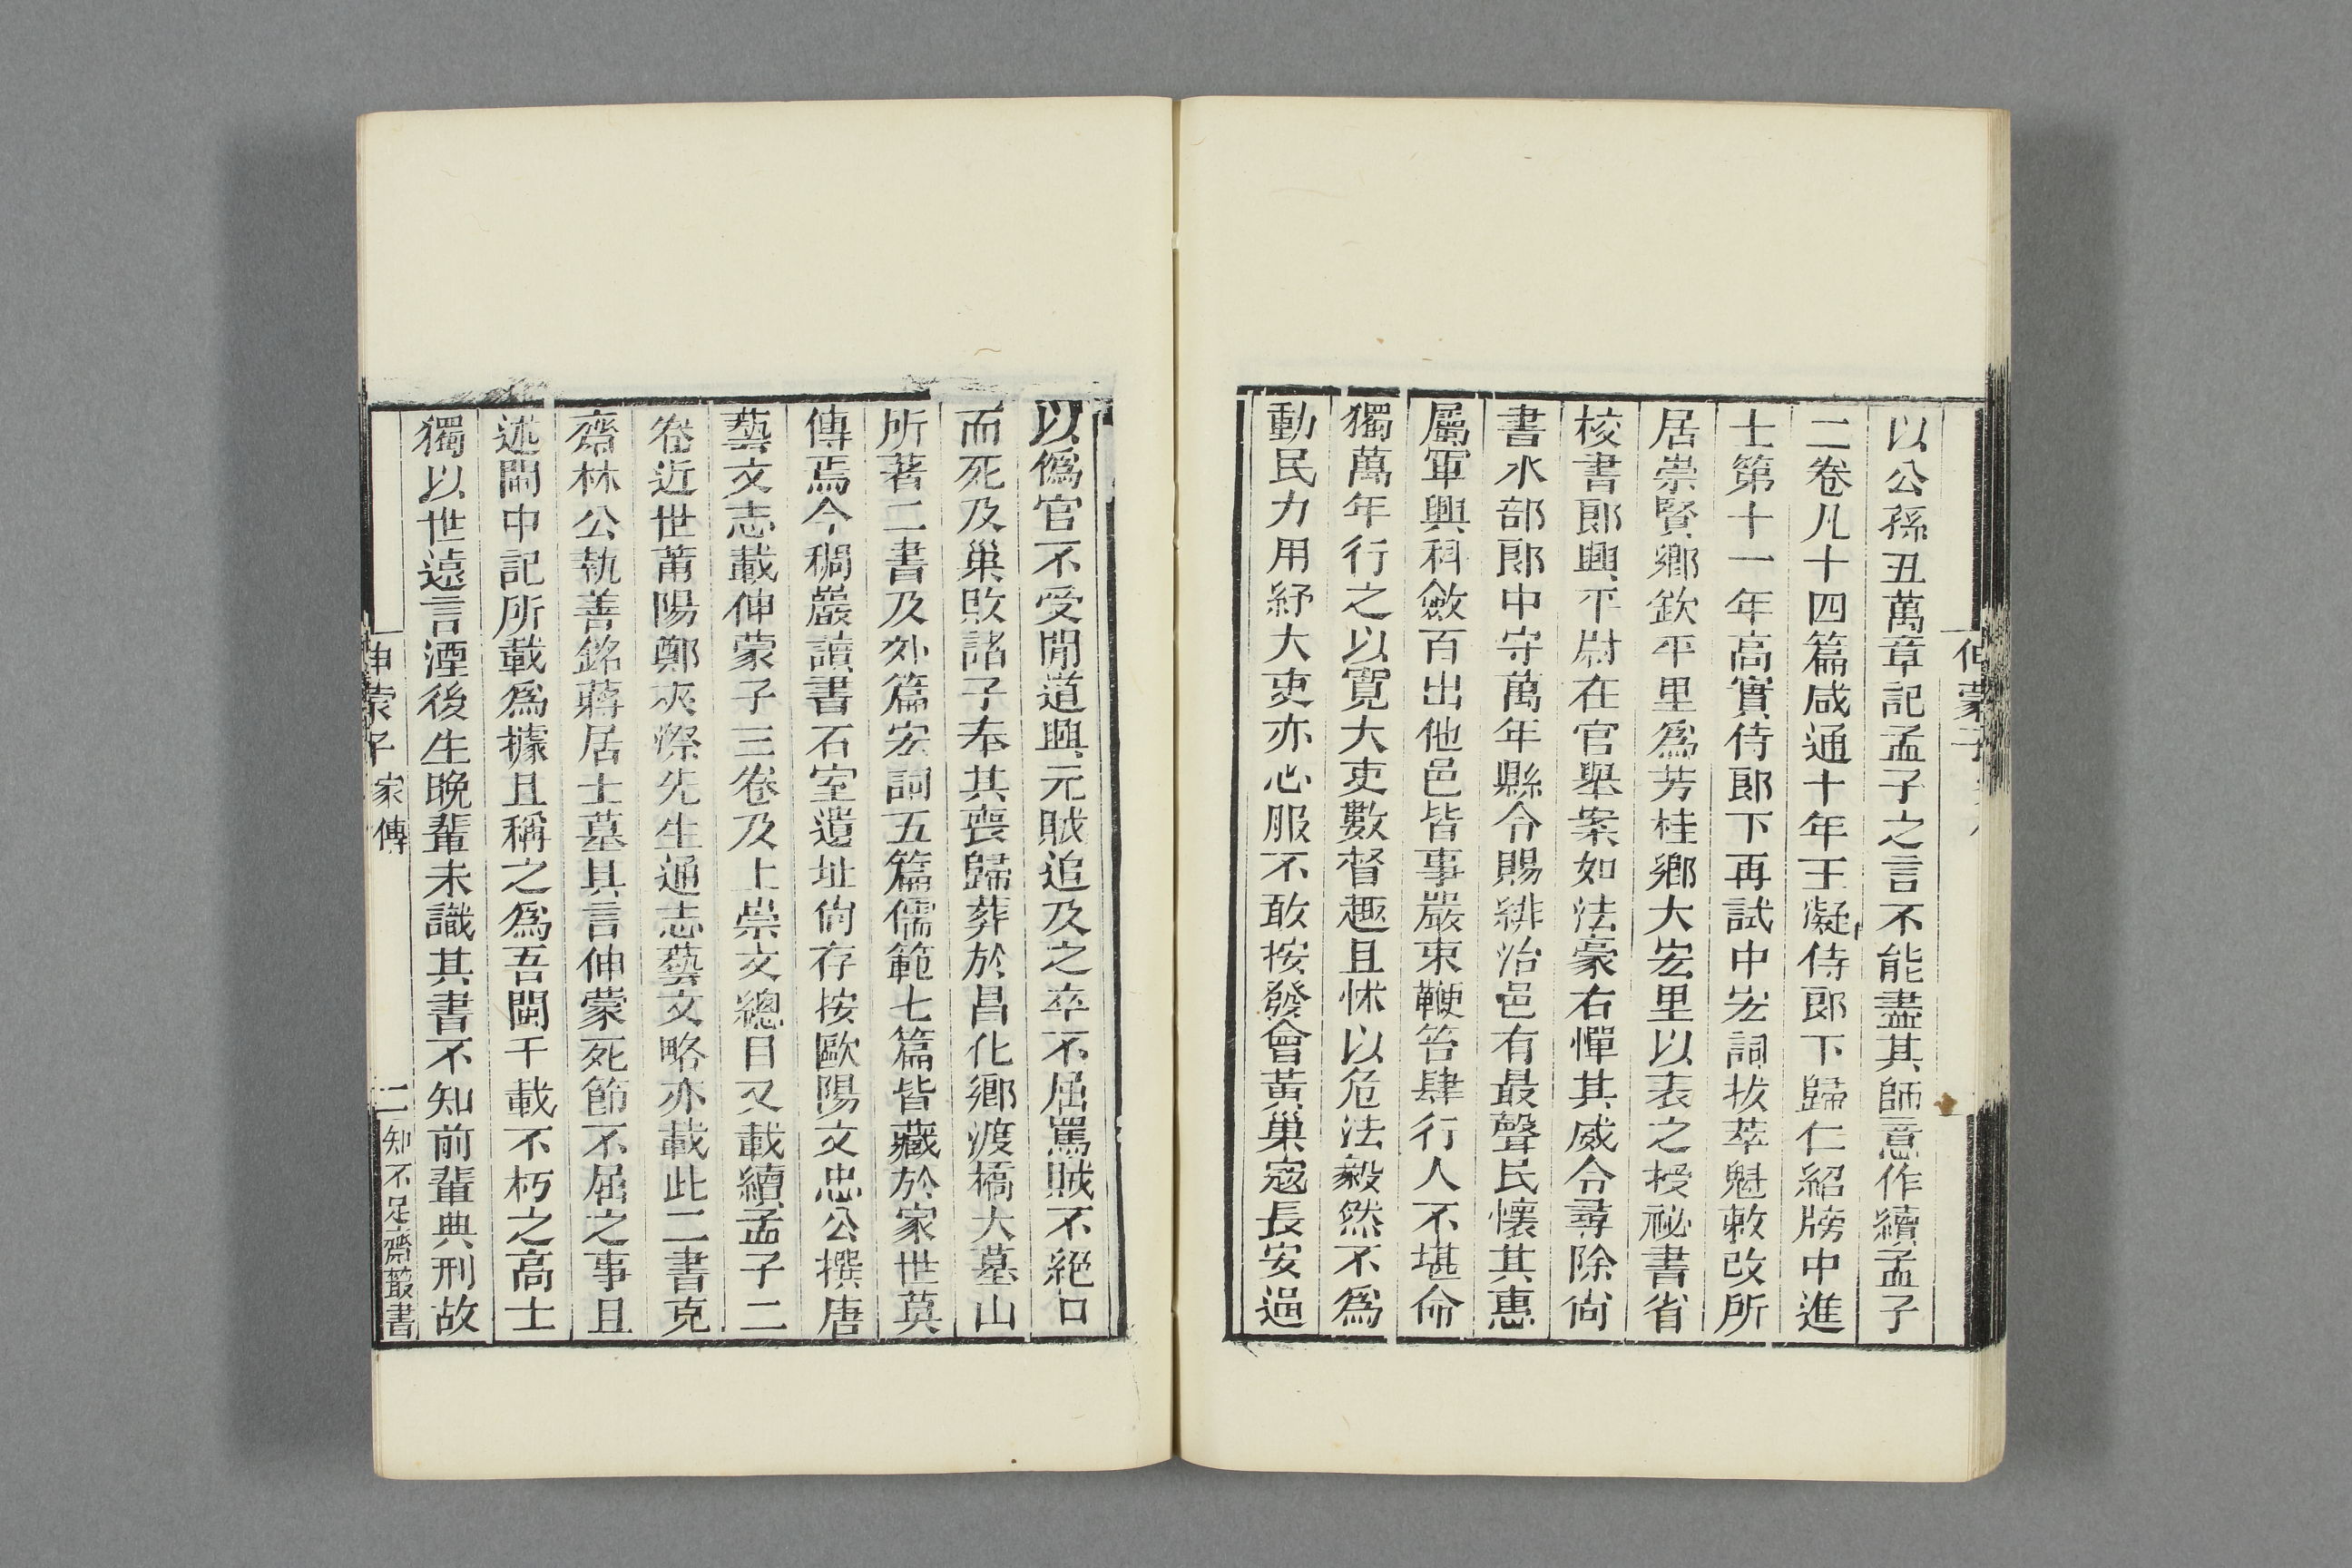 以公孫丑萬章記孟子之言不能盡其師意作續孟子
二卷凡十四篇咸通十年王凝侍郎下歸仁紹牓中進
士第十一年高實侍郎下再試中宏詞拔萃魁敕改所
居崇賢鄉欽平里爲芳桂鄉大宏里以表之授祕書省
校書郎興平尉在官舉案如法豪右憚其威令尋除尙
書水部郎中守萬年縣令賜緋治邑有最聲民懷其惠
屬軍興科斂百出他邑皆事嚴束鞭笞肆行人不堪命
獨萬年行之以寬大吏數督趣且怵以危法毅然不爲
動民力用紓大吏亦心服不敢按發會黃巢寇長安逼
以僞官不受閒道興元賊追及之卒不屈罵賊不絕口
而死及巢敗諸子奉其喪歸葬於昌化鄉渡橋大墓山
所著二書及外篇宏詞五篇儒範七篇皆藏於家世莫
傳焉今稠巖讀書石室遺址尙存按歐陽文忠公撰唐
藝文志載伸蒙子三卷及上崇文總目又載續孟子二
卷近世莆陽鄭夾漈先生通志藝文略亦載此二書克
齋林公執善銘蔣居士墓其言伸蒙死節不屈之事且
述閩中記所載爲據且稱之爲吾閩千載不朽之高士
獨以世遠言湮後生晚輩未識其書不知前輩典刑故
伸蒙子 家傳 二 知不足齋叢書